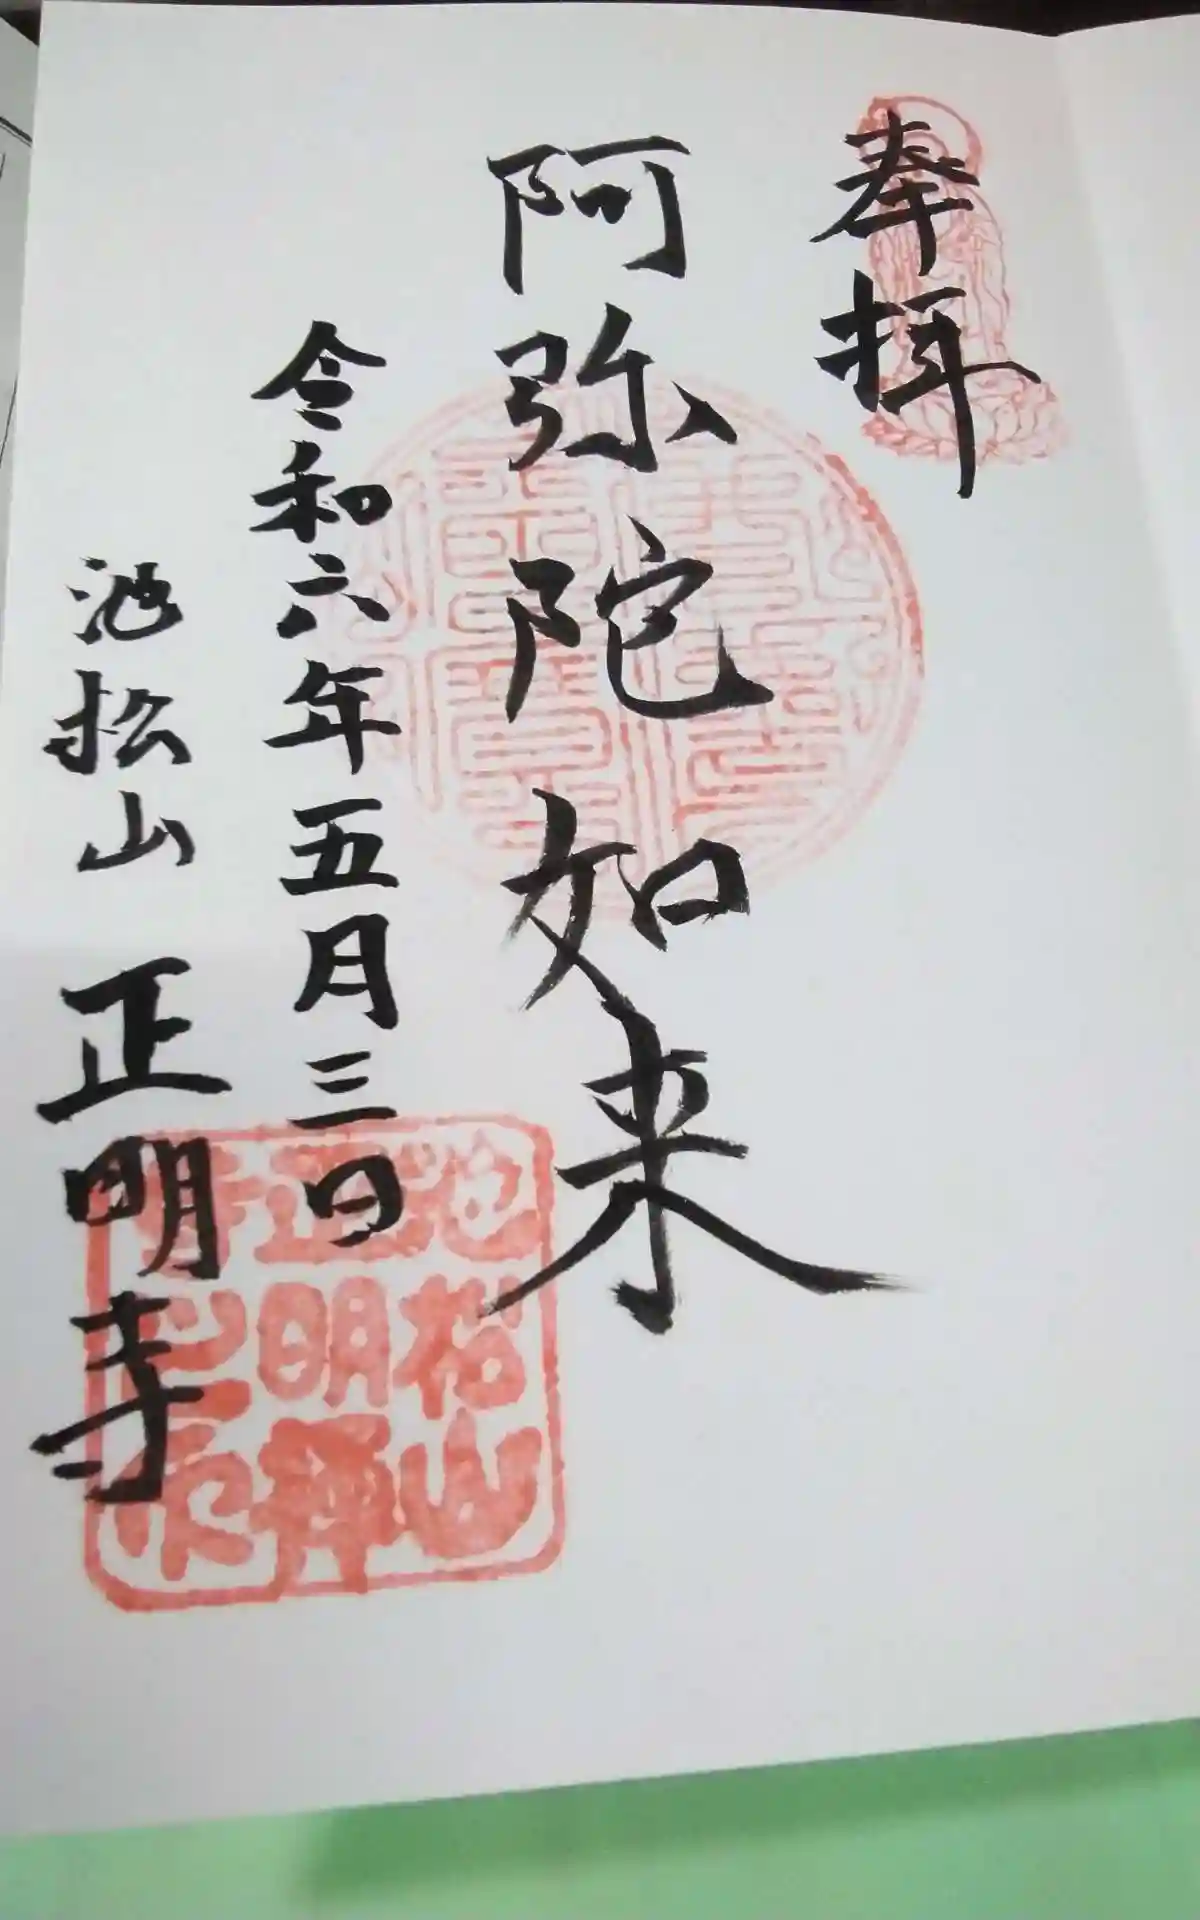 奉拝
阿弥陀如来
令和六年五月三日
池松山 正明寺
池松山
正明禅